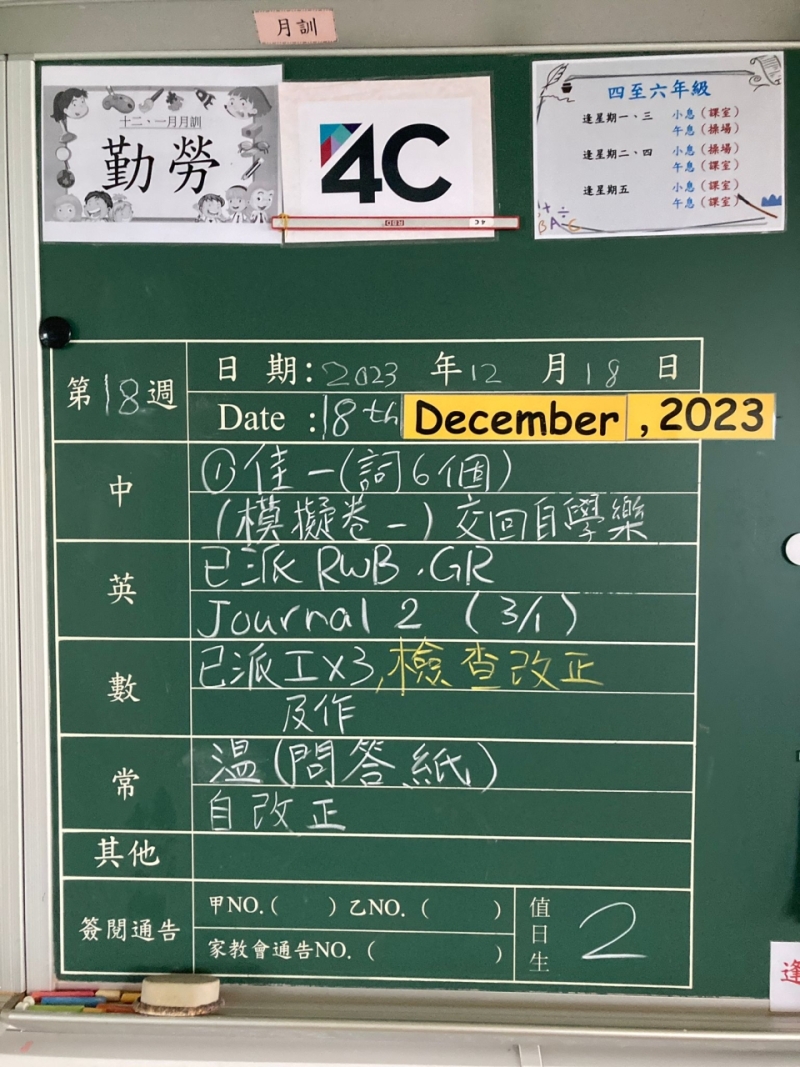 月訓
十二、一月月訓
勤勞
4C
四至六年級
逢星期一、三 小息（課室）
午息（操場）
逢星期二、四 小息（操場）
午息（課室）
逢星期五 小息（課室）
午息（課室）
第18週
日期：2023 年12 月18 日
Date : 18th December , 2023
中
①佳一(詞6個)
(模擬卷一) 交回自學樂
英
已派 RWB . GR
Journal 2 (3/1)
數
已派工x3, 檢查改正
及作
常
温(問答紙)
自改正
其他
簽閱通告
甲NO.( ) 乙NO. ( )
家教會通告NO. ( )
值日生
2
逢